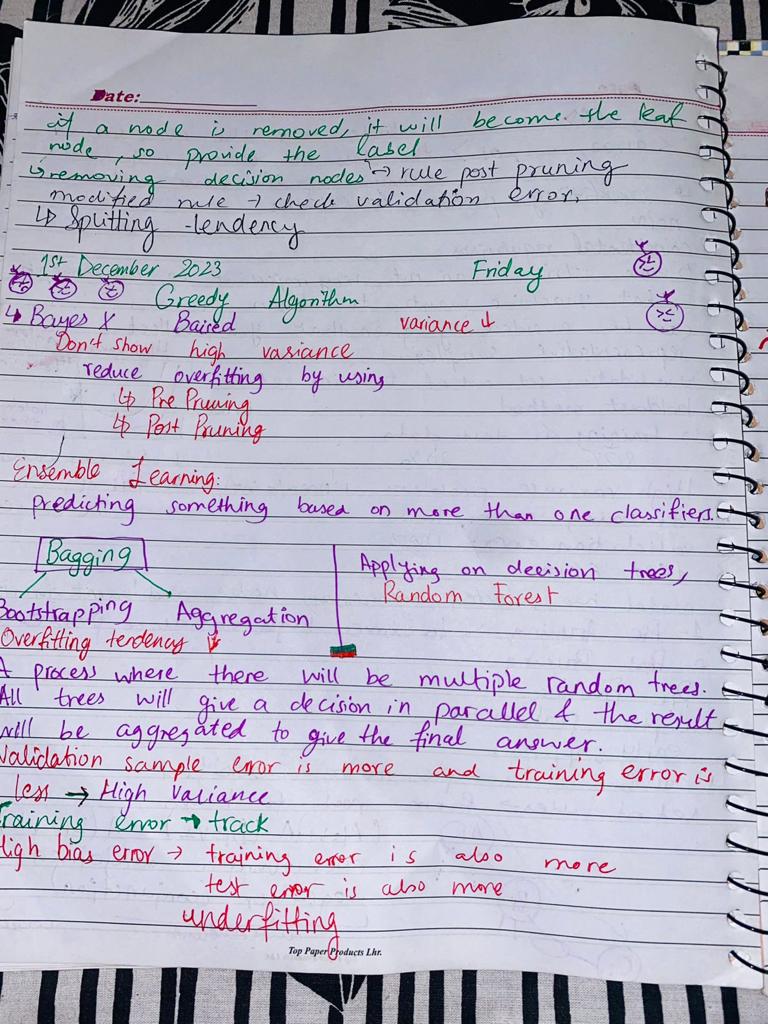 Date:
if a node is removed, it will become the leaf
node, so provide the label
↳ removing decision nodes → rule post pruning
modified rule → check validation error.
↳ Splitting tendency
1st December 2023 Friday
Greedy Algorithm
↳ Bayes X Baised variance ↓
Don't show high variance
reduce overfitting by using
↳ Pre Pruning
↳ Post Pruning
Ensemble Learning:
predicting something based on more than one classifiers.
Bagging
Bootstrapping Aggregation
Overfitting tendency ↓
Applying on decision trees,
Random Forest
A process where there will be multiple random trees.
All trees will give a decision in parallel & the result
will be aggregated to give the final answer.
Validation sample error is more and training error is
less → High Variance
Training error → track
High bias error → training error is also more
test error is also more
underfitting
Top Paper Products Lhr.